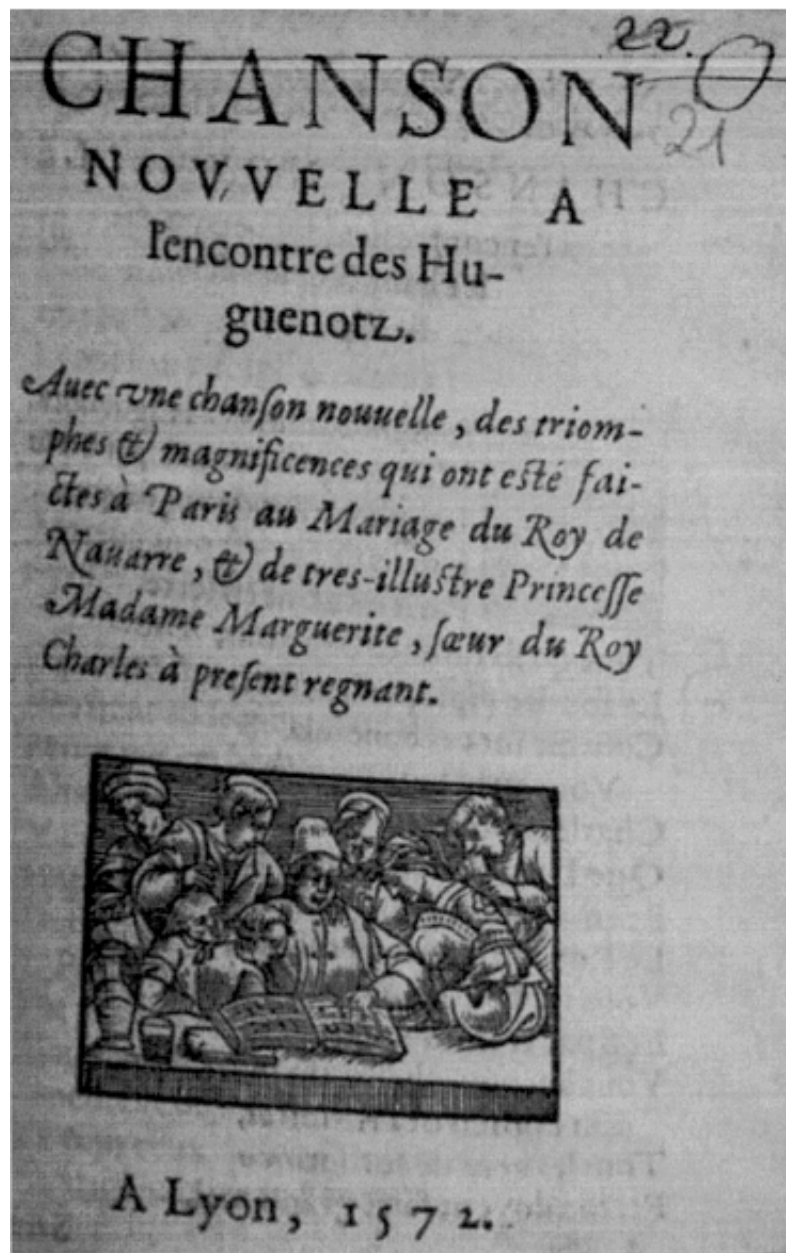 22.
21
CHANSON
NOVVELLE A
l'encontre des Hu-
guenotz.
Auec vne chanſon nouuelle, des triom-
phes & magnificences qui ont eſté fai-
ctes à Paris au Mariage du Roy de
Nauarre, & de tres-illuſtre Princeſſe
Madame Marguerite, ſœur du Roy
Charles à preſent regnant.
A Lyon, 1572.